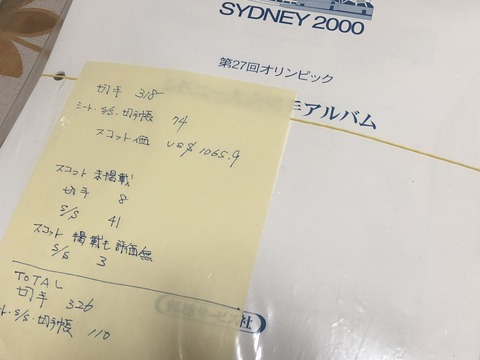 SYDNEY 2000
第27回オリンピック
手アルバム
切手 318
シート・S/S・切手帳 74
スコット価 US$1065.9
スコット未掲載
切手 8
S/S 41
スコット掲載も評価無
S/S 3
TOTAL
切手 326
ート・S/S・切手帳 110
郵趣サービス社